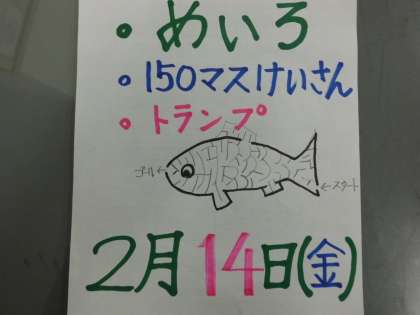 • めいろ
• 150マスけいさん
• トランプ
ゴール←
←スタート
2月14日(金)